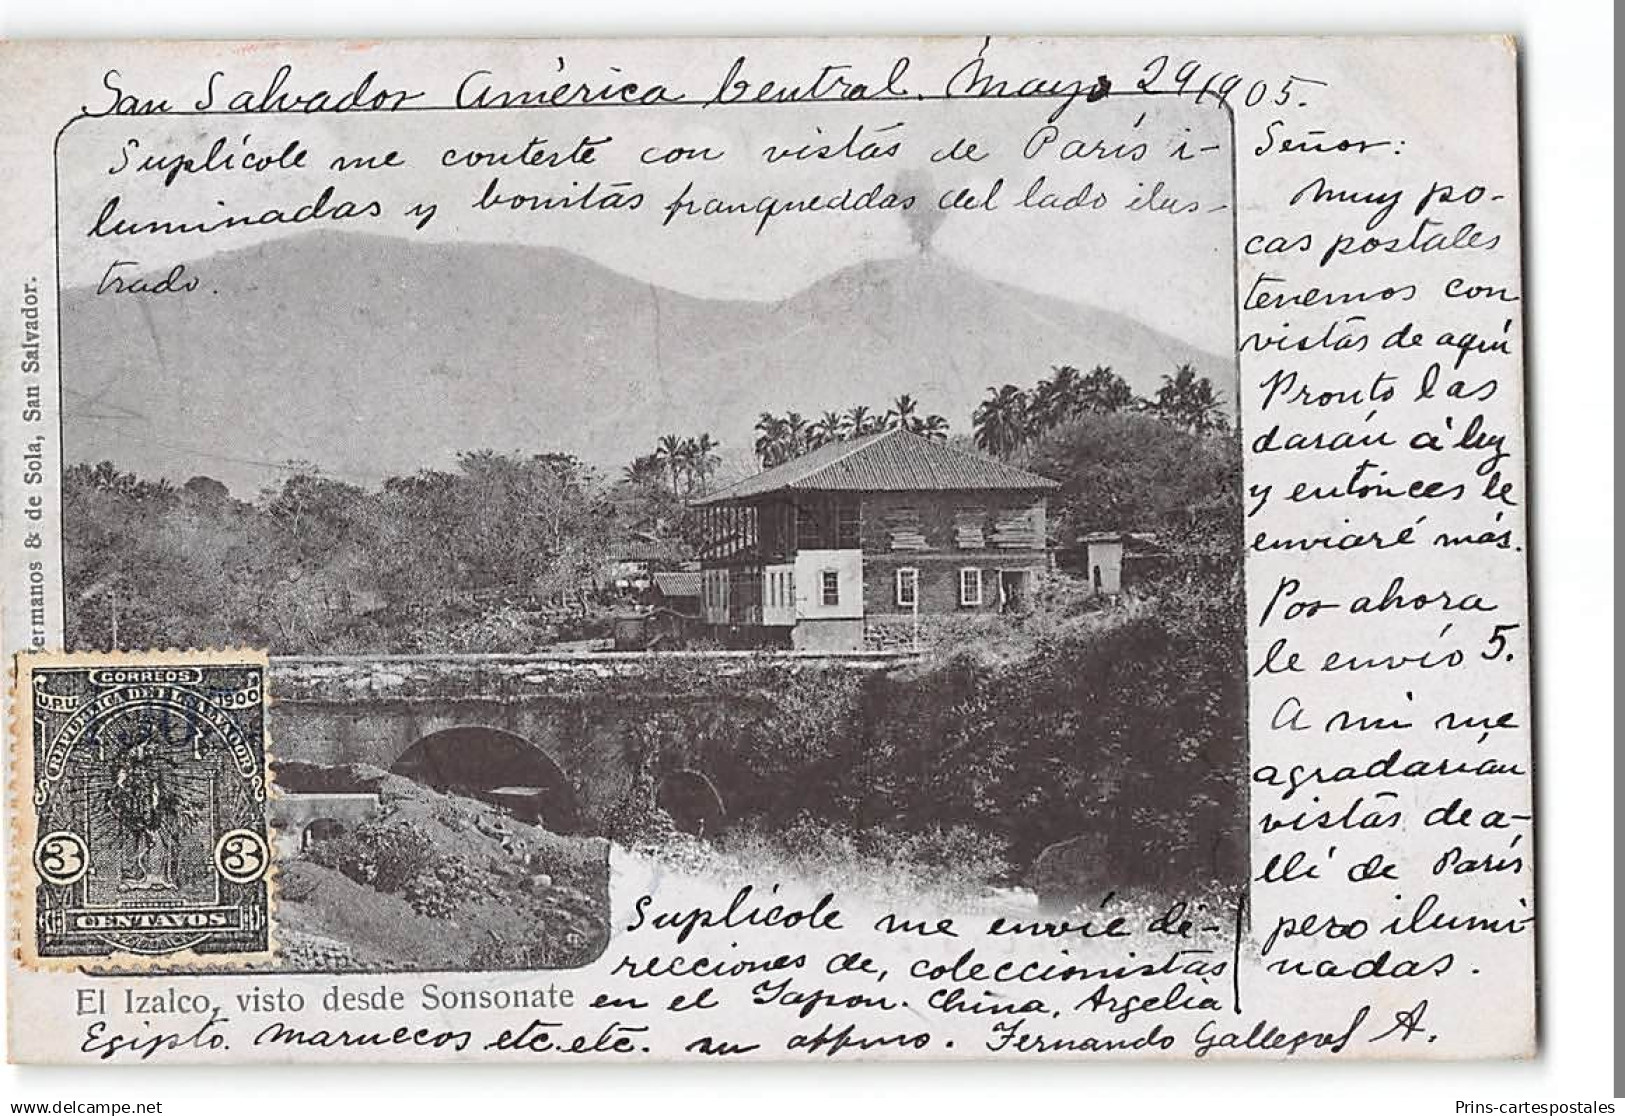 San Salvador América Central. Mayo 29/1905.
Señor:
Muy po-
cas postales
tenemos con
vistas de aquí
Pronto las
darán á luz
y entónces le
enviaré más.
Por ahora
le envío 5.
A mi me
agradarían
vistas de a-
llí de París
pero ilumi-
nadas.
Suplícole me conteste con vistas de París i-
luminadas y bonitas franqueadas del lado ilus-
trado.
Suplícole me envíe di-
recciones de, coleccionistas
en el Japon. China, Argelia
Egipto. Marruecos etc. etc. su affmo. Fernando Gallegos A.
El Izalco, visto desde Sonsonate
Hermanos & de Sola, San Salvador.
CORREOS
U.P.U. 1900
REPUBLICA DE EL SALVADOR
3 3
CENTAVOS
delcampe.net
Prins-cartespostales